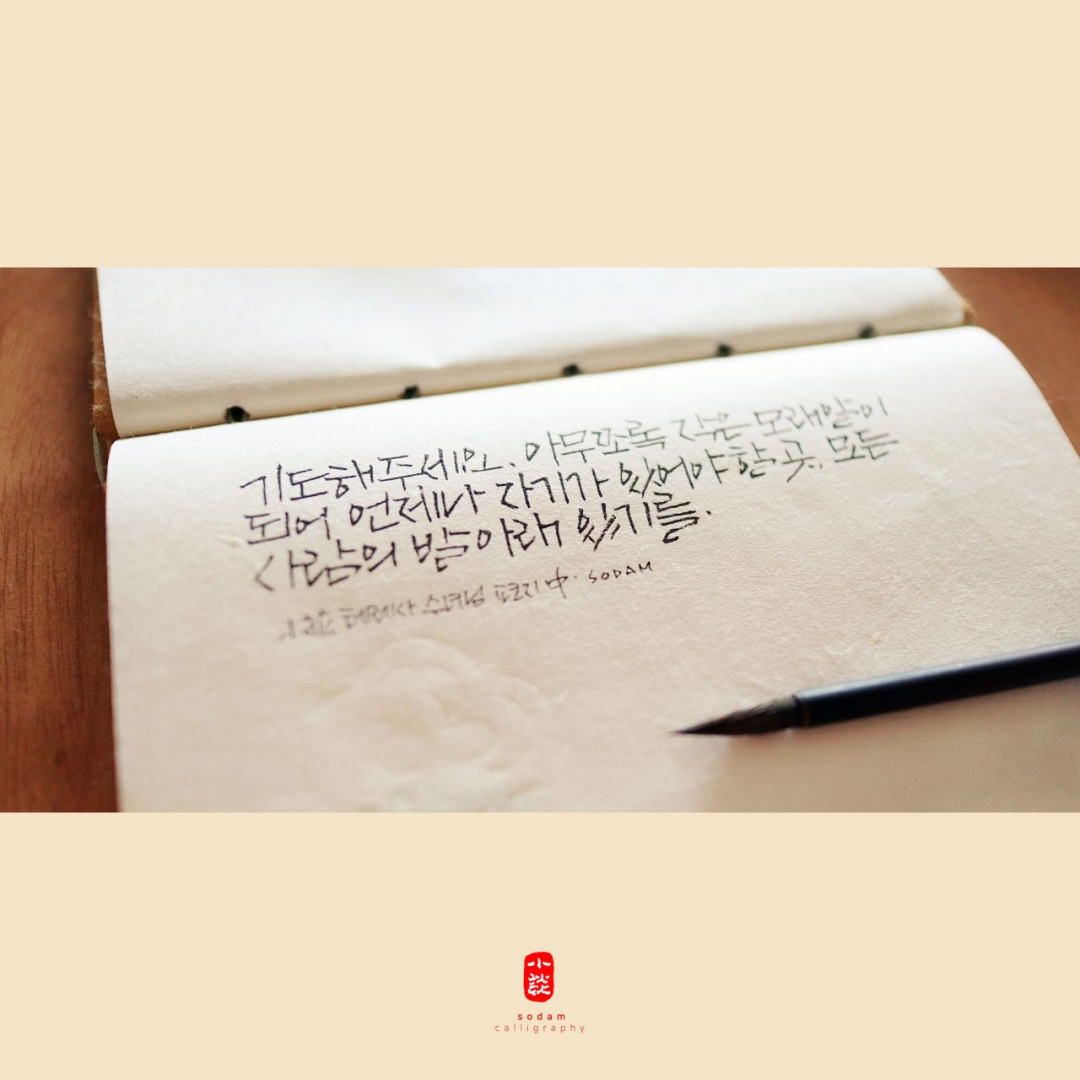 기도해주세요. 아무쪼록 작은 모래알이
되어 언제나 자기가 있어야 할 곳, 모든
사람의 발 아래 있기를.
소화 테레사 수녀님 편지 中. SODAM
小談
sodam
calligraphy